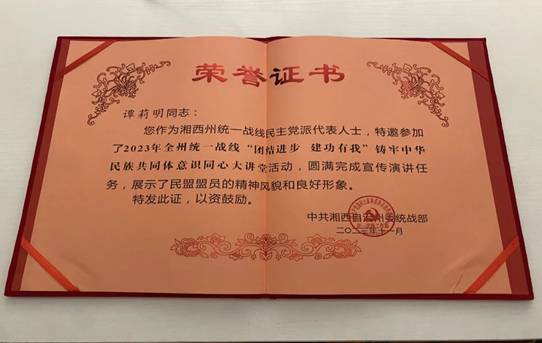 荣誉证书
谭莉明同志：
您作为湘西州统一战线民主党派代表人士，特邀参加
了2023年全州统一战线“团结进步 建功有我”铸牢中华
民族共同体意识同心大讲堂活动，圆满完成宣传演讲任
务，展示了民盟盟员的精神风貌和良好形象。
特发此证，以资鼓励。
中共湘西自治州委统战部
二〇二三年十一月